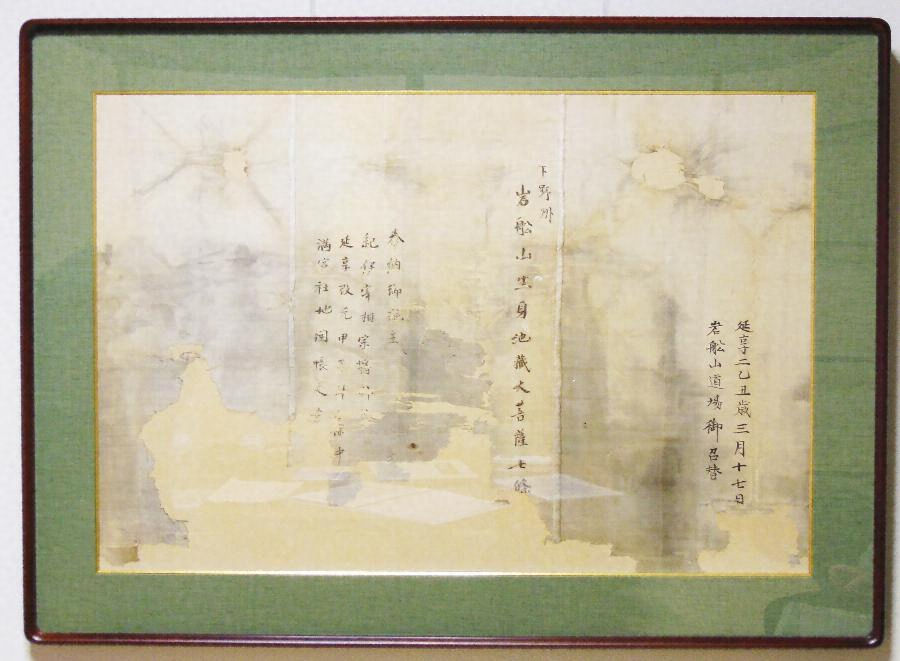 延享二乙丑歳三月十七日
岩舩山道場御召替
下野州
岩舩山生身地藏大菩薩七條
奉納御施主
紀伊宰相宗
延享改元甲子
満宮社地開帳之